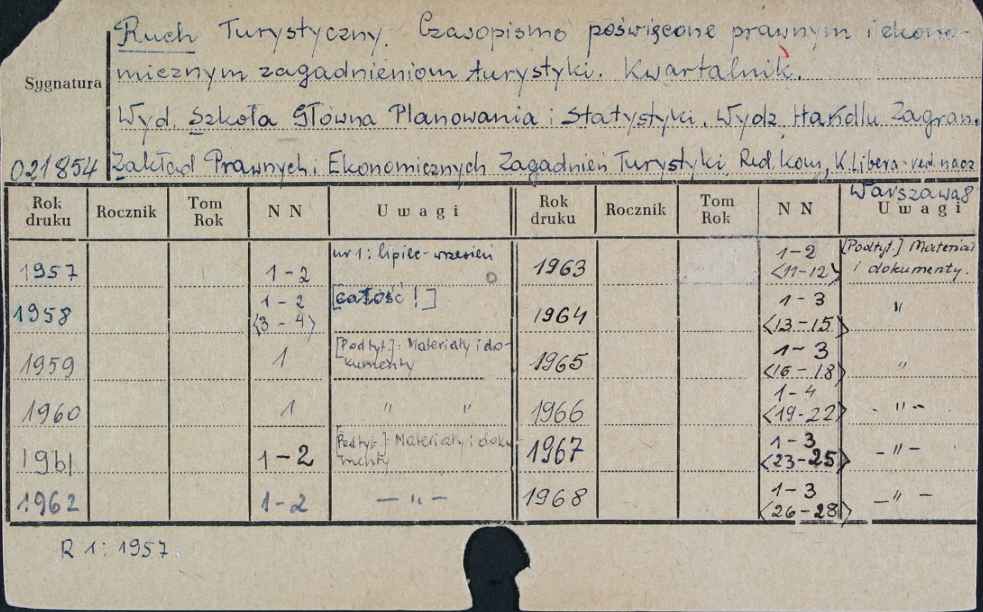 Ruch Turystyczny. Czasopismo poświęcone prawnym i ekono-
Sygnatura micznym zagadnieniom turystyki. Kwartalnik.
Wyd. Szkoła Główna Planowania i Statystyki. Wydz. Handlu Zagran.
021854 Zakład Prawnych i Ekonomicznych Zagadnień Turystyki. Red. kom. K. Libera - red. nacz.
Warszawa
Rok druku Rocznik Tom Rok NN Uwagi Rok druku Rocznik Tom Rok NN Uwagi
1957 1-2 nr 1: lipiec-wrzesień 1963 1-2 <11-12> [Podtyt.] Materiały i dokumenty.
1958 1-2 <3-4> [całość!] 1964 1-3 <13-15> "
1959 1 [Podtyt.]: Materiały i do-kumenty 1965 1-3 <16-18> "
1960 1 " " 1966 1-4 <19-22> - " -
1961 1-2 [Podtyt.]: Materiały i doku-menty 1967 1-3 <23-25> - " -
1962 1-2 - " - 1968 1-3 <26-28> - " -
R 1: 1957.